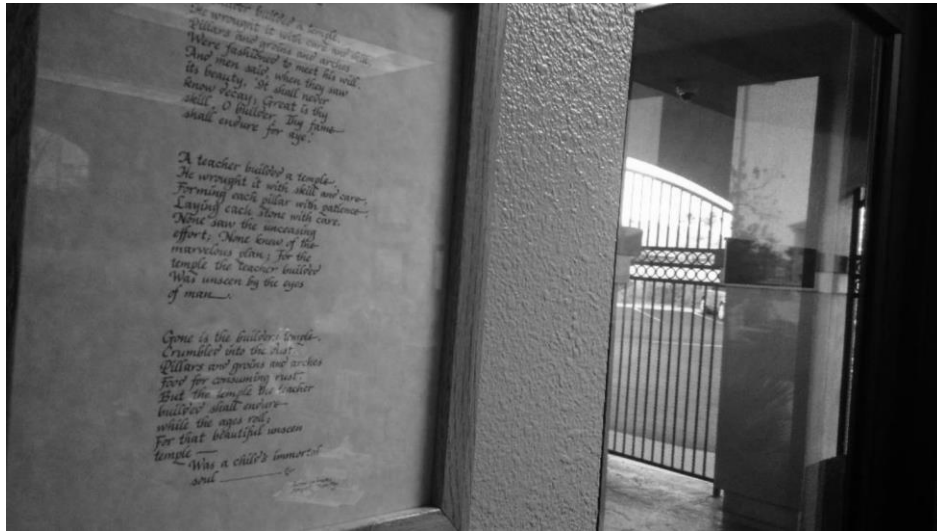 builded a temple,
He wrought it with care and skill.
Pillars and groins and arches
Were fashioned to meet his will.
And men said, when they saw
its beauty, "It shall never
know decay; Great is thy
skill, O builder, Thy fame
shall endure for aye."
A teacher builded a temple,
He wrought it with skill and care.
Forming each pillar with patience
Laying each stone with care.
None saw the unceasing
effort; None knew of the
marvelous plan; For the
temple the teacher builded
Was unseen by the eyes
of man.
Gone is the builders temple.
Crumbled into the dust.
Pillars and groins and arches
Food for consuming rust.
But the temple the teacher
builded shall endure
while the ages roll;
For that beautiful unseen
temple —
Was a child's immortal
soul